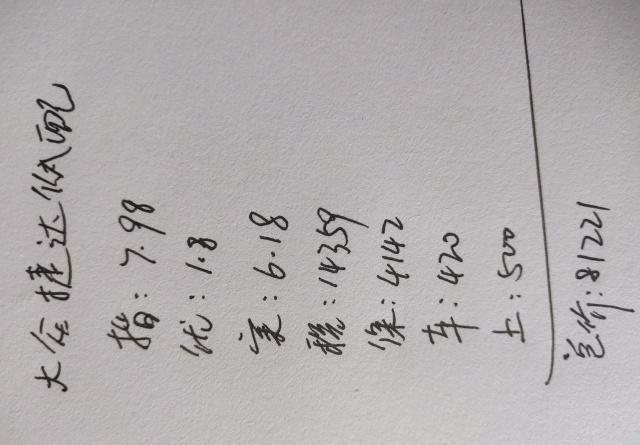 大众捷达低配
指:7.98
优:1.8
实:6.18
税:14359
保:4142
车:420
上:500
总价:81221